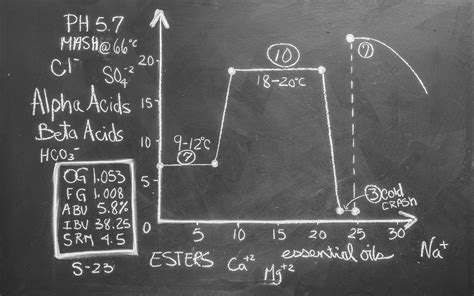 PH 5.7
MASH @ 66°C
Cl⁻ SO₄⁻²
Alpha Acids
Beta Acids
HCO₃⁻
OG 1.053
FG 1.008
ABV 5.8%
IBU 38.25
SRM 4.5
S-23
20
15
10
5
9-12°C
7
10
18-20°C
7
3 Cold
CRASH
5 10 15 20 25 30
Na⁺
ESTERS Ca⁺² Mg⁺² essential oils